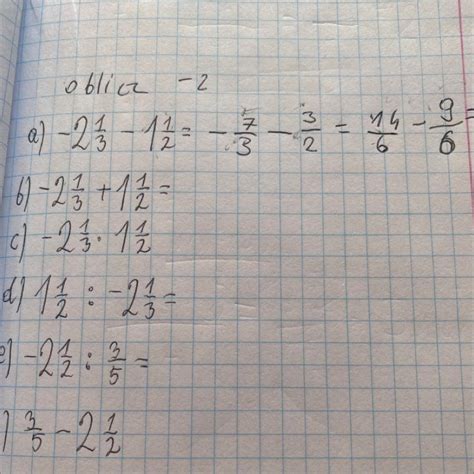 oblicz -2
a) -2 1/3 - 1 1/2 = - 7/3 - 3/2 = 14/6 - 9/6 =
b) -2 1/3 + 1 1/2 =
c) -2 1/3 · 1 1/2
d) 1 1/2 : -2 1/3 =
e) -2 1/2 : 3/5 =
) 3/5 - 2 1/2